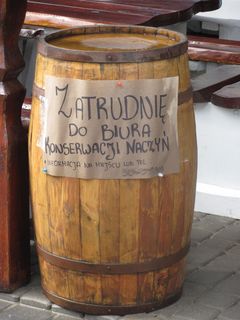 ZATRUDNIĘ
DO BIURA
KONSERWACJI NACZYŃ
INFORMACJA NA MIEJSCU LUB TEL.